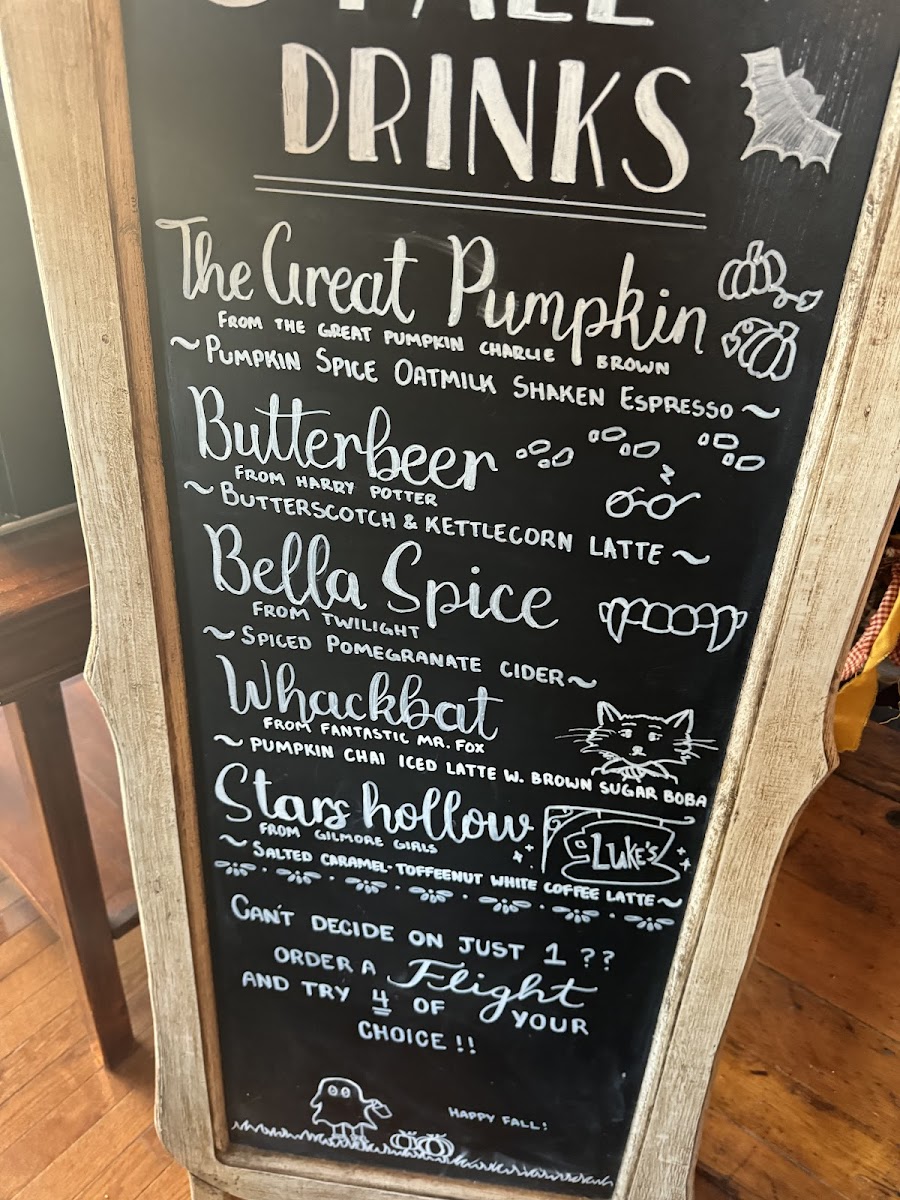 FALL
DRINKS
The Great Pumpkin
FROM THE GREAT PUMPKIN CHARLIE BROWN
~PUMPKIN SPICE OATMILK SHAKEN ESPRESSO~
Butterbeer
FROM HARRY POTTER
~BUTTERSCOTCH & KETTLECORN LATTE~
Bella Spice
FROM TWILIGHT
~SPICED POMEGRANATE CIDER~
Whackbat
FROM FANTASTIC MR. FOX
~PUMPKIN CHAI ICED LATTE W. BROWN SUGAR BOBA
Stars hollow
FROM GILMORE GIRLS
LUKE'S
~SALTED CARAMEL-TOFFEENUT WHITE COFFEE LATTE~
CAN'T DECIDE ON JUST 1??
ORDER A Flight
AND TRY 4 OF YOUR
CHOICE!!
HAPPY FALL!